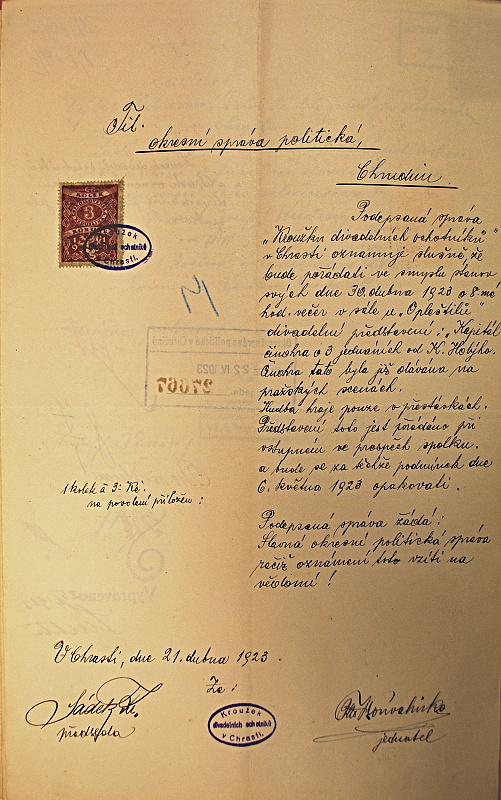 Tit.
okresní správa politická,
Chrudim.
KOLEK
3
Kroužek
divadelních ochotníků
v Chrasti.
Podepsaná správa
„Kroužku divadelních ochotníků"
v Chrasti oznamuje slušně, že
bude pořádati ve smyslu stanov
svých dne 30. dubna 1923 o 8. mé
hod. večer v sále u „Opleštilů"
divadelní představení:
činohra o 3 jednáních od K.
Činohra tato byla již dávána na
pražských scenách.
Hudba hraje pouze v přestávkách.
Představení toto jest pořádáno při
vstupném ve prospěch spolku.
a bude se za těchže podmínek dne
6. května 1923 opakovati.
1 kolek à 3.- Kč.
na povolení přiložen:
Podepsaná správa žádá:
Slavná okresní politická správa
račiž oznámení toto vzíti na
vědomí!
V Chrasti, dne 21. dubna 1923.
Za:
předseda
Kroužek
divadelních ochotníků
v Chrasti.
jednatel